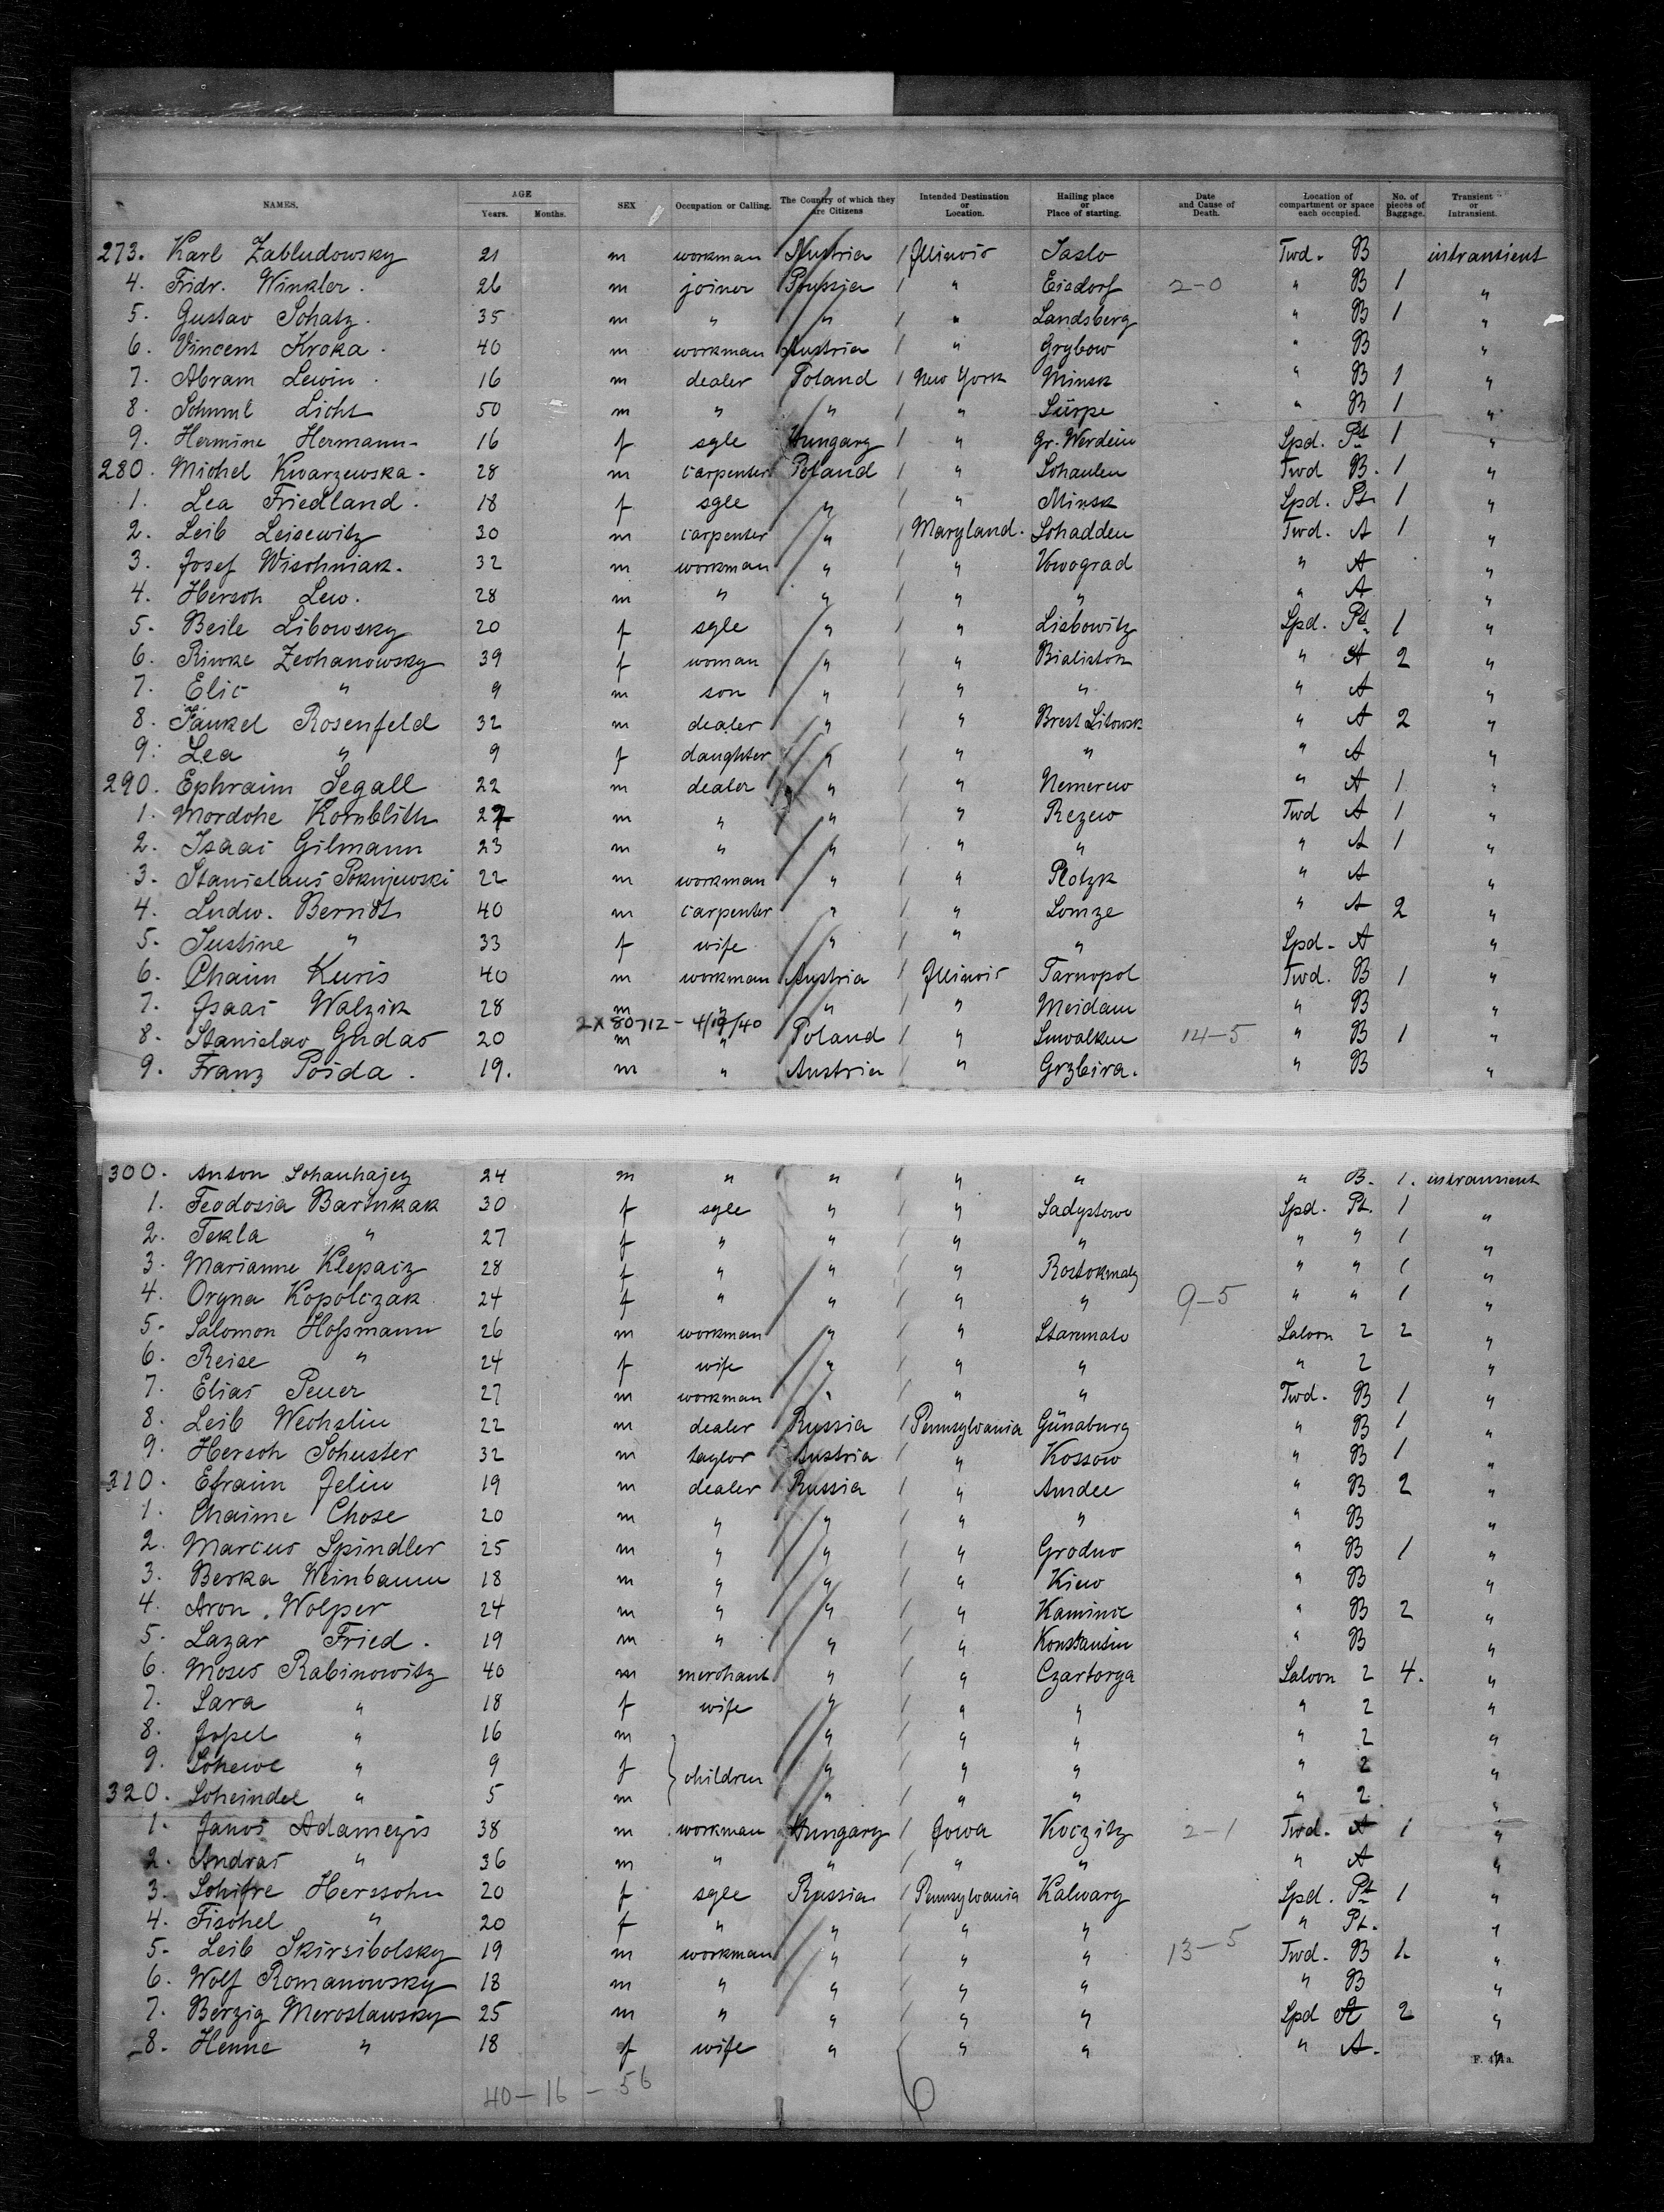 NAMES. AGE Years. Months. SEX Occupation or Calling. The Country of which they are Citizens Intended Destination or Location. Hailing place or Place of starting. Date and Cause of Death. Location of compartment or space each occupied. No. of pieces of Baggage. Transient or Intransient.
273. Karl Zabludowsky 21 m workman Austria / Illinois Jaslo Twd. B intransient
4. Fridr. Winkler. 26 m joiner Prussia / " Eisdorf 2-0 " B 1 "
5. Gustav Schatz. 35 m " " / " Landsberg " B 1 "
6. Vincent Kroka. 40 m workman Austria / " Grybow " B "
7. Abram Lewin. 16 m dealer Poland / New York Minsk " B 1 "
8. Schmul Licht 50 m " " / " Sürpe " B 1 "
9. Hermine Hermann- 16 f sgle Hungary / " Gr. Werdein Spd. Pt 1 "
280. Michel Kwarzewska- 28 m carpenter Poland / " Schaulen Twd B. 1 "
1. Lea Friedland. 18 f sgle " / " Minsk Spd. Pt 1 "
2. Leib Leisewitz 30 m carpenter " / Maryland. Schadden Twd. A 1 "
3. Josef Wischniak. 32 m workman " / " Nowograd " A "
4. Hersch Lew. 28 m " " / " " " A "
5. Beile Libowsky 20 f sgle " / " Liebowitz Spd. Pt. 1 "
6. Riwke Zechanowsky 39 f woman " / " Bialistok " A 2 "
7. Elic " 9 m son " / " " " A "
8. Jankel Rosenfeld 32 m dealer " / " Brest Litowsk " A 2 "
9. Lea " 9 f daughter " / " " " A "
290. Ephraim Segall 22 m dealer " / " Nemerew " A 1 "
1. Mordche Kornblith 27 m " " / " Rezew Twd A 1 "
2. Isaac Gilmann 23 m " " / " " " A 1 "
3. Stanislaus 22 m workman " / " Plotzk " A "
4. Ludw. Berndt 40 m carpenter " / " Lomze " A 2 "
5. Justine " 33 f wife " / " " Spd- A "
6. Chaim Kuris 40 m workman Austria / Illinois Tarnopol Twd. B 1 "
7. Isaac Walzik 28 m " " / " Meidam " B "
2X80712 - 4/19/40
8. Stanislav Gudas 20 m " Poland / " Suwalken 14-5 " B 1 "
9. Franz Poida. 19. m " Austria / " Grzbira. " B "
300. Anton Schauhajez 24 m " " / " " " B. 1. intransient
1. Feodosia Bartnkak 30 f sgle " / " Sadystowe Spd. Pt. 1 "
2. Tekla " 27 f " " / " " " " 1 "
3. Marianne Klepacz 28 f " " / " Rostokmaly " " 1 "
4. Oryna Kopolczak 24 f " " / " " 9-5 " " 1 "
5. Salomon Hoßmann 26 m workman " / " Starmato Saloon 2 2 "
6. Reise " 24 f wife " / " " " 2 "
7. Elias Peuer 27 m workman " / " " Twd. B 1 "
8. Leib Wechslin 22 m dealer Russia / Pennsylvania Günaburg " B 1 "
9. Hersch Schuster 32 m taylor Austria / " Kossow " B 1 "
310. Efraim Jelin 19 m dealer Russia / " Amdee " B 2 "
1. Chaime Chose 20 m " " / " " " B "
2. Marcus Spindler 25 m " " / " Grodno " B 1 "
3. Berka Weinbaum 18 m " " / " Kiew " B "
4. Aron Wolper 24 m " " / " Kaminie " B 2 "
5. Lazar Fried. 19 m " " / " Konstantin " B "
6. Moses Rabinowitz 40 m merchant " / " Czartorya Saloon 2 4. "
7. Sara " 18 f wife " / " " " 2 "
8. Jossel " 16 m " / " " " 2 "
9. Schewe " 9 f } children " / " " " 2 "
320. Scheindel " 5 m " / " " " 2 "
1. Janos Adamezis 38 m workman Hungary / Jowa Koczitz 2-1 Twd. A 1 "
2. Andras " 36 m " " / " " " A "
3. Schifre Herssohn 20 f sgle Russia / Pennsylvania Kalwary Spd. Pt 1 "
4. Fischel " 20 f " " / " " " Pt. "
5. Leib Skirsibolsky 19 m workman " / " " 13-5 Twd. B 1. "
6. Wolf Romanowsky 18 m " " / " " " B "
7. Berzig Meroslawsky 25 m " " / " " Spd A 2 "
8. Henne " 18 f wife " / " " " A. "
40 - 16 - 56 6